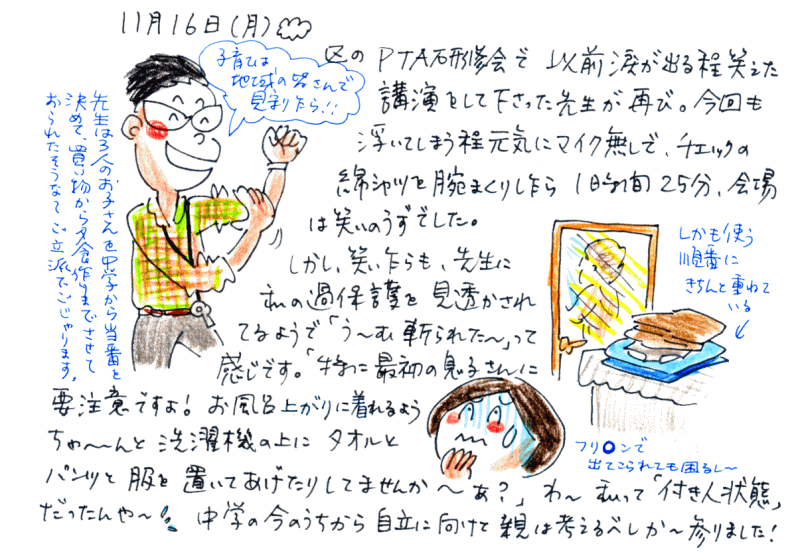 11月16日(月)
子育ては
地域の皆さんで
見守りたら!!
区のPTA研修会で以前涙が出る程笑えた
講演をして下さった先生が再び。今回も
浮いてしまう程元気にマイク無しで、チェックの
綿シャツを腕まくりし乍ら1時間25分、会場
は笑いのうずでした。
しかし、笑い乍らも、先生に
私の過保護を見透かされ
てるようで「う〜む斬られた〜」って
感じです。「特に最初の息子さんに
要注意ですよ!お風呂上がりに着れるよう
ちゃ〜〜んと洗濯機の上にタオルと
パンツと服を置いてあげたりしてませんか〜ぁ?」わ〜私って「付き人状態」
だったんや〜!。中学の今のうちから自立に向けて親は考えるべしか〜参りました!
先生は3人のお子さんを中学から当番を
決めて、買い物から夕食作りまでさせて
おられたそうなて
ご立派でごじゃります。
しかも使う
順番に
きちんと重ねて
いる
フリ○ンで
出てこられても困るし〜